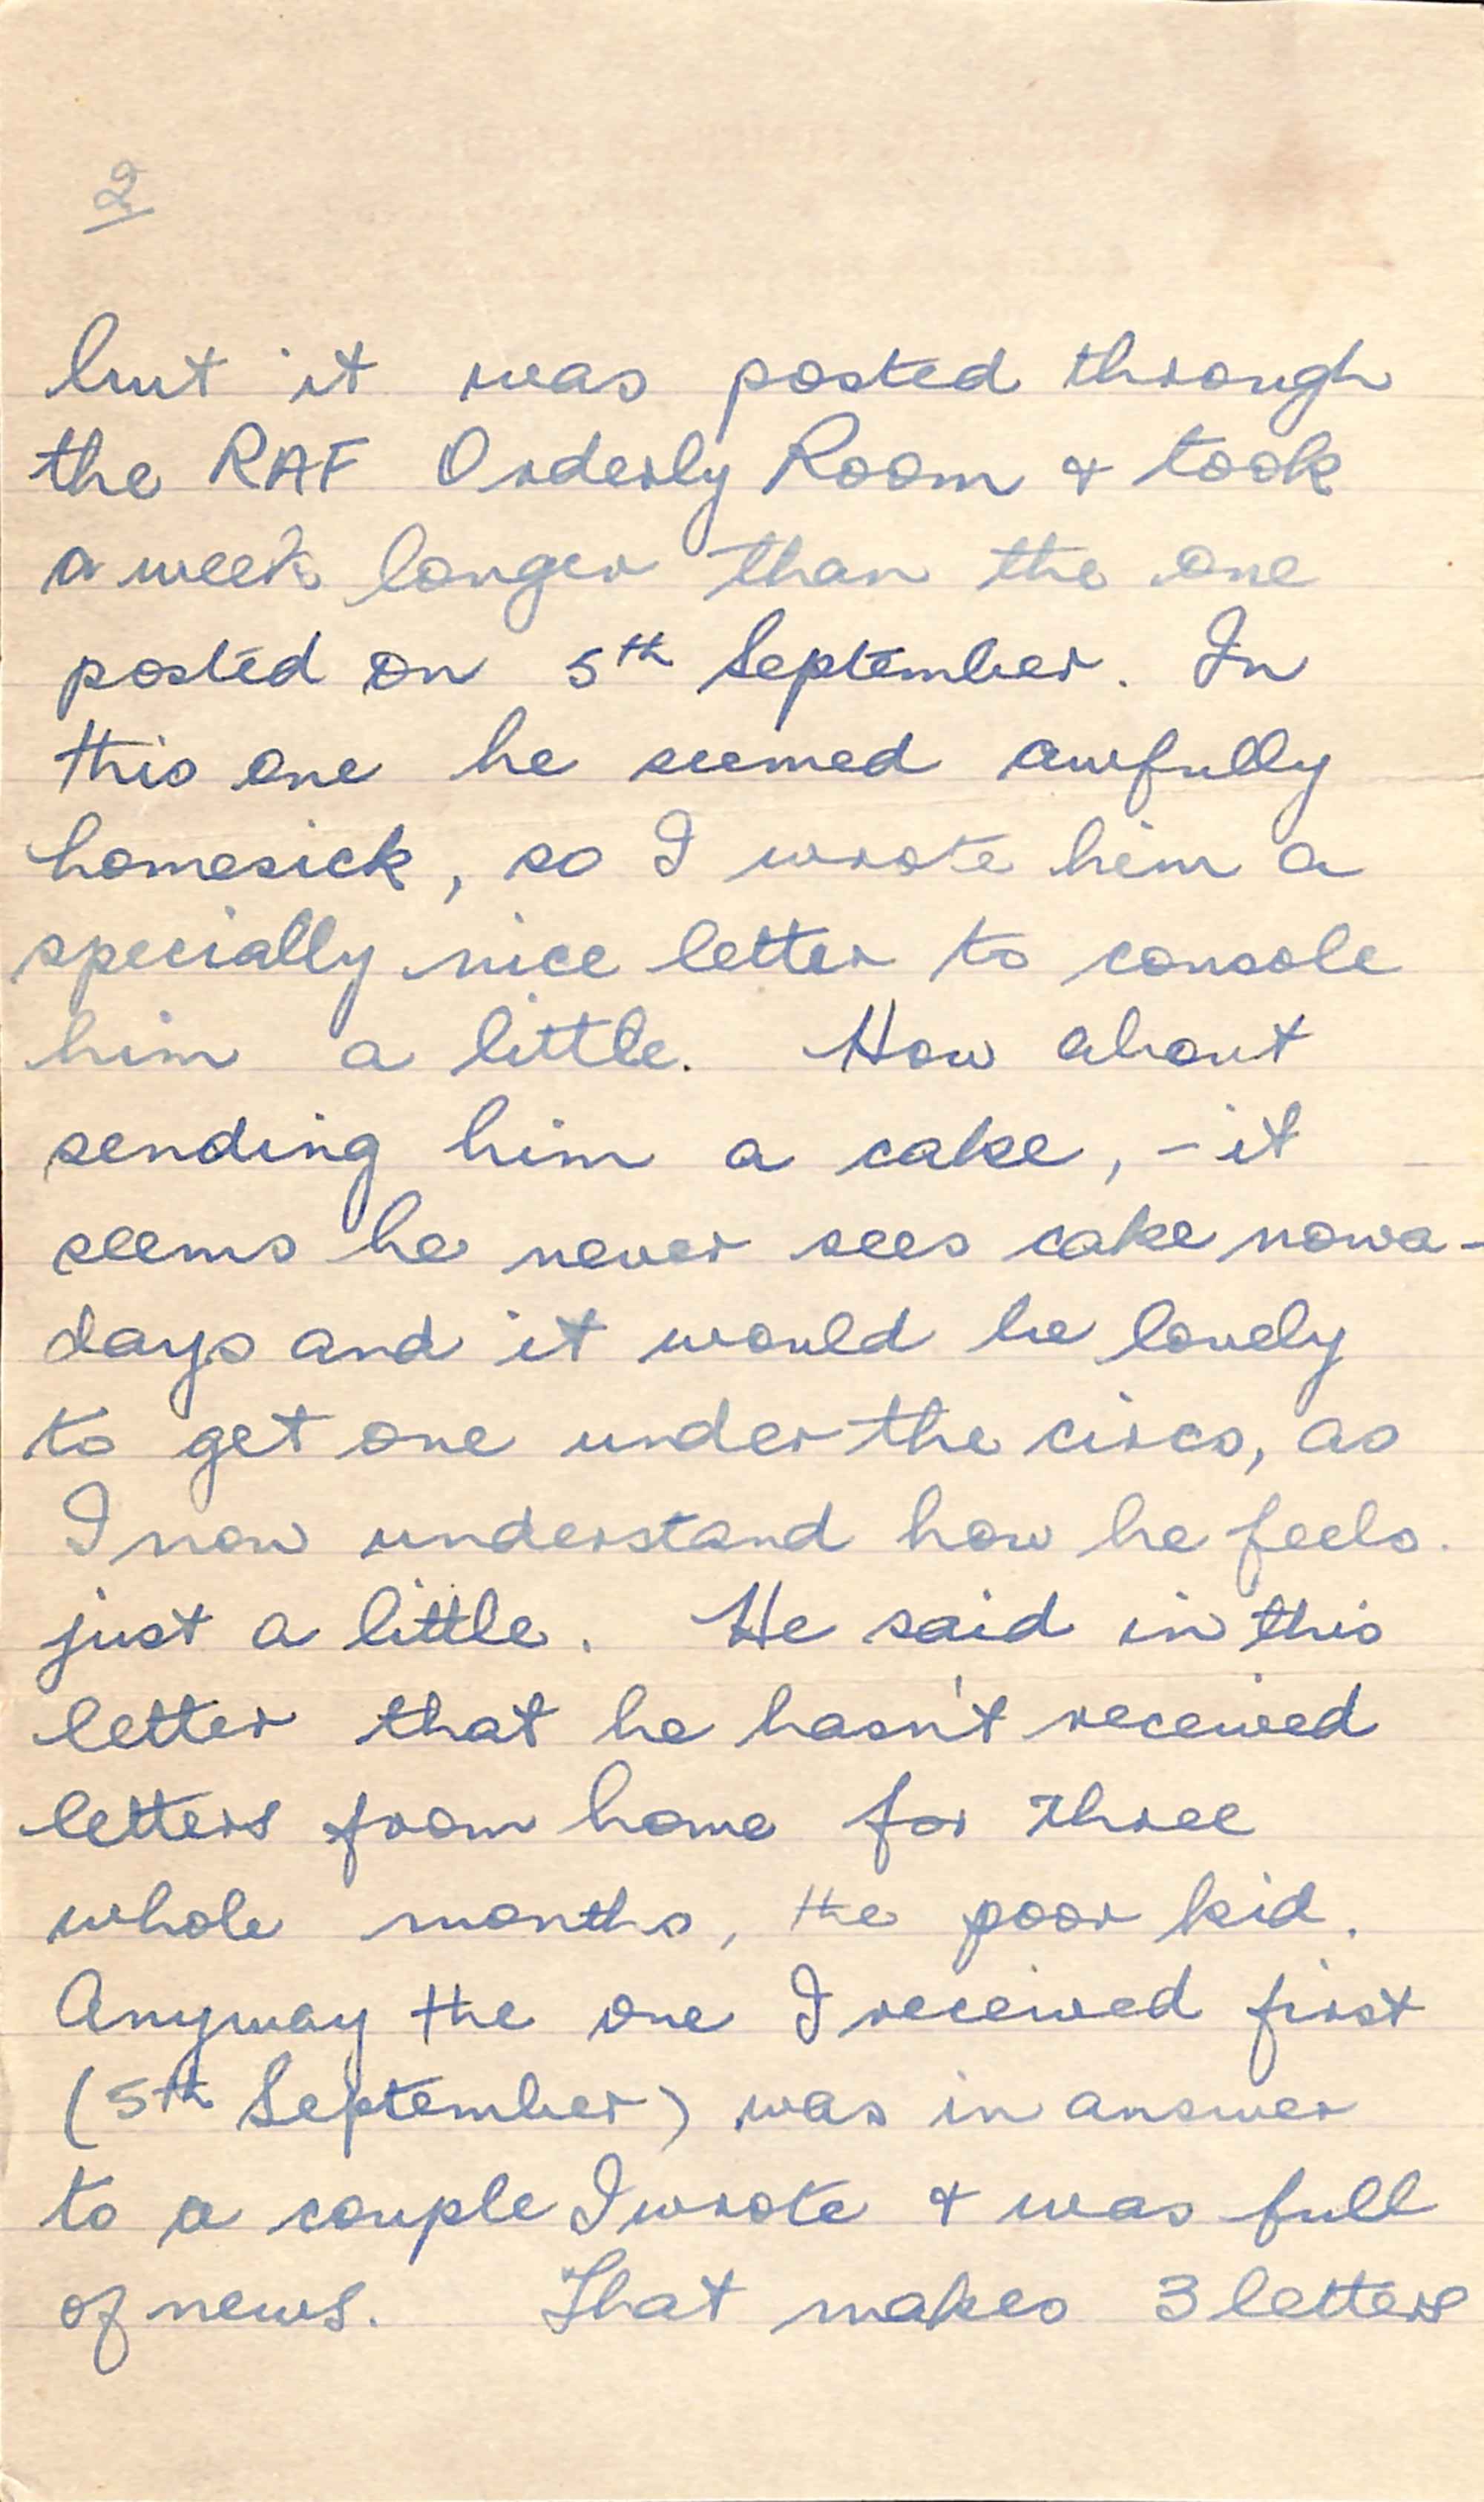 2
but it was posted through
the RAF Orderly Room + took
a week longer than the one
posted on 5th September. In
this one he seemed awfully
homesick, so I wrote him a
specially nice letter to console
him a little. How about
sending him a cake, - it
seems he never sees cake nowa-
days and it would be lovely
to get one under the circs, as
I now understand how he feels.
just a little. He said in this
letter that he hasn't received
letters from home for three
whole months, the poor kid.
Anyway the one I received first
(5th September) was in answer
to a couple I wrote + was full
of news. That makes 3 letters